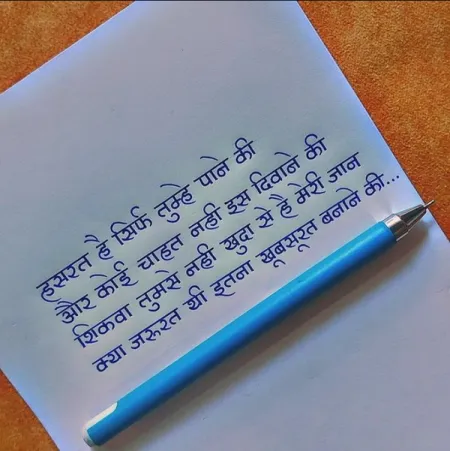 हसरत है सिर्फ तुम्हे पाने की
और कोई चाहत नही इस दिवाने की
शिकवा तुमसे नही खुदा से है मेरी जान
क्या जरूरत थी इतना खूबसूरत बनाने की...